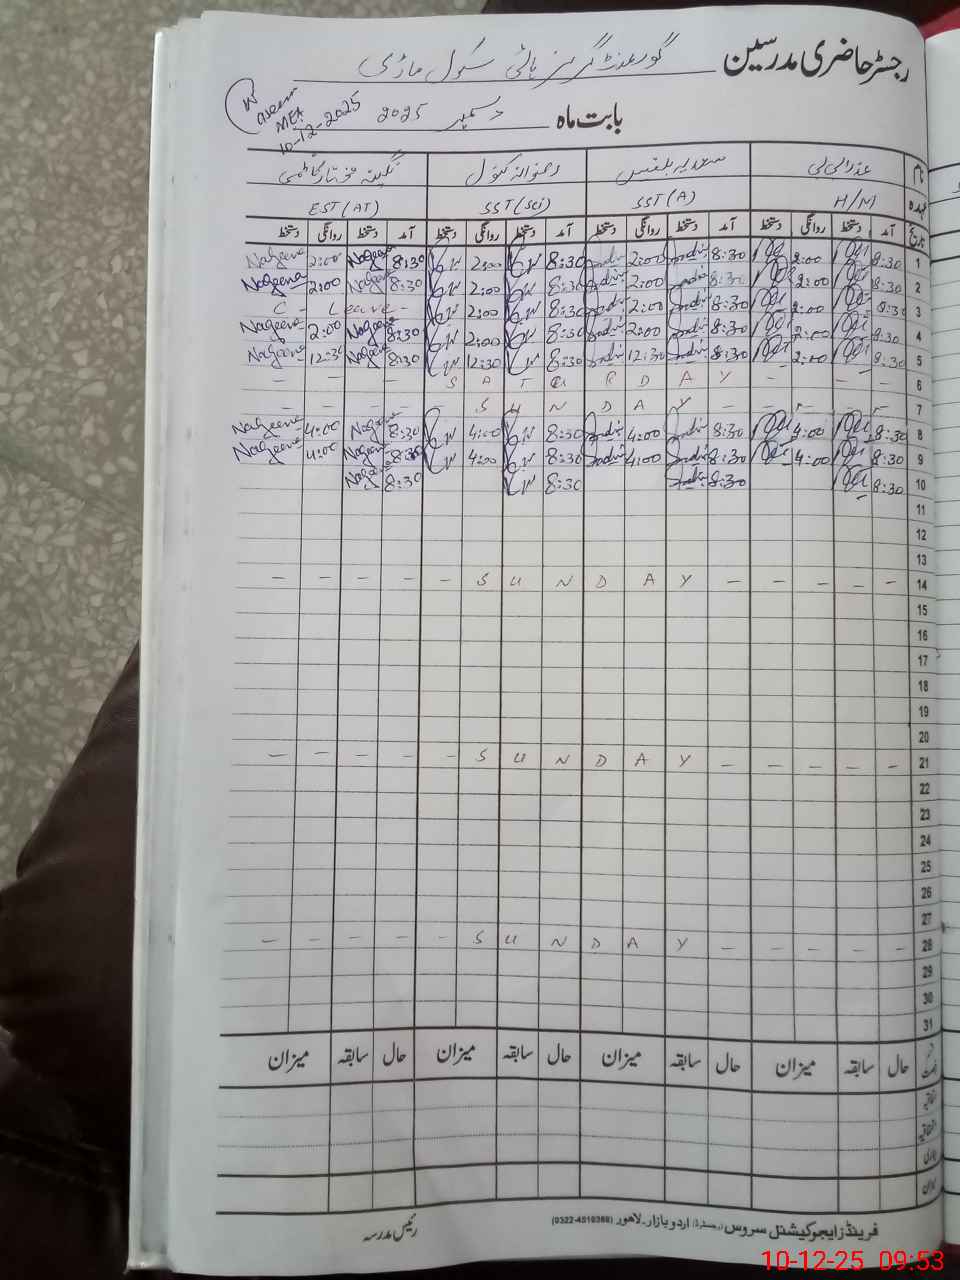 رجسٹر حاضری مدرسین گورنمنٹ گرلز ہائی سکول ماڑی
بابت ماہ دسمبر 2025
Waseem
MEA
10-12-2025
نام سعدیہ بلقیس رضوانہ کنول نگینہ مختار کاظمی
عہدہ H/M SST(A) SST(Sci) EST(AT)
تاریخ آمد دستخط روانگی دستخط آمد دستخط روانگی دستخط آمد دستخط روانگی دستخط آمد دستخط روانگی دستخط
1 8:30 2:00 8:30 2:00 8:30 2:00 8:30 Nageena 2:00 Nageena
2 8:30 2:00 8:30 2:00 8:30 2:00 8:30 Nageena 2:00 Nageena
3 8:30 2:00 8:30 2:00 8:30 2:00 C - Leave -
4 8:30 2:00 8:30 2:00 8:30 2:00 8:30 Nageena 2:00 Nageena
5 8:30 2:00 8:30 12:30 8:30 12:30 8:30 Nageena 12:30 Nageena
6 - - - S A T U R D A Y - - -
7 - - - S U N D A Y - - -
8 8:30 4:00 8:30 4:00 8:30 4:00 8:30 Nageena 4:00 Nageena
9 8:30 4:00 8:30 4:00 8:30 4:00 8:30 Nageena 4:00 Nageena
10 8:30 8:30 8:30 8:30 Nageena
11
12
13
14 - - - - - S U N D A Y - - - - -
15
16
17
18
19
20
21 - - - - - S U N D A Y - - - - -
22
23
24
25
26
27
28 - - - - - S U N D A Y - - - - -
29
30
31
حال سابقہ میزان حال سابقہ میزان حال سابقہ میزان حال سابقہ میزان
رئیس مدرسہ
فرینڈز ایجوکیشنل سروس (رجسٹرڈ) اردو بازار۔لاہور (0322-4519369)
10-12-25 09:53